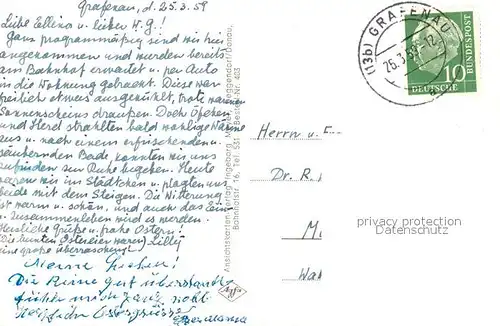 Grafenau, d. 25.3.59
Liebe Ellina u. lieber W.G.!
Ganz programmäßig sind wir hier
angekommen und werden bereits
am Bahnhof erwartet u. per Auto
in die Wohnung gebracht. Diese war
freilich etwas ausgekühlt, trotz warmen
Sonnenscheins draußen. Doch Öfchen
und Herd strahlten bald wohlige Wärme
aus u. nach einem erfrischenden u.
säubernden Bade konnten wir uns
zufrieden zur Ruhe begeben. Heute
waren wir im Städtchen u. plagten uns
beide mit dem Steigen. Die Witterung
ist warm u. schön, und auch das
u. Zusammenleben wird es werden.
Herzliche Grüße u. frohe Ostern!
(Die bunten Ostereier waren Lilly
eine große Überraschung)
Meine Lieben!
Die Reise gut überstanden
fühle mich ganz wohl
herzliche Ostergrüsse
Ansichtskarten-Verlag Ingeborg Deggendorf/Donau,
Bahnhofstr. 16, Tel. 531 Bestell-Nr. 403
Agfa
(13b) GRAFENAU
26.3.59.-12
10
DEUTSCHE
BUNDESPOST
Herrn u. F
Dr. R.
M
Wa
privacy protection
Datenschutz